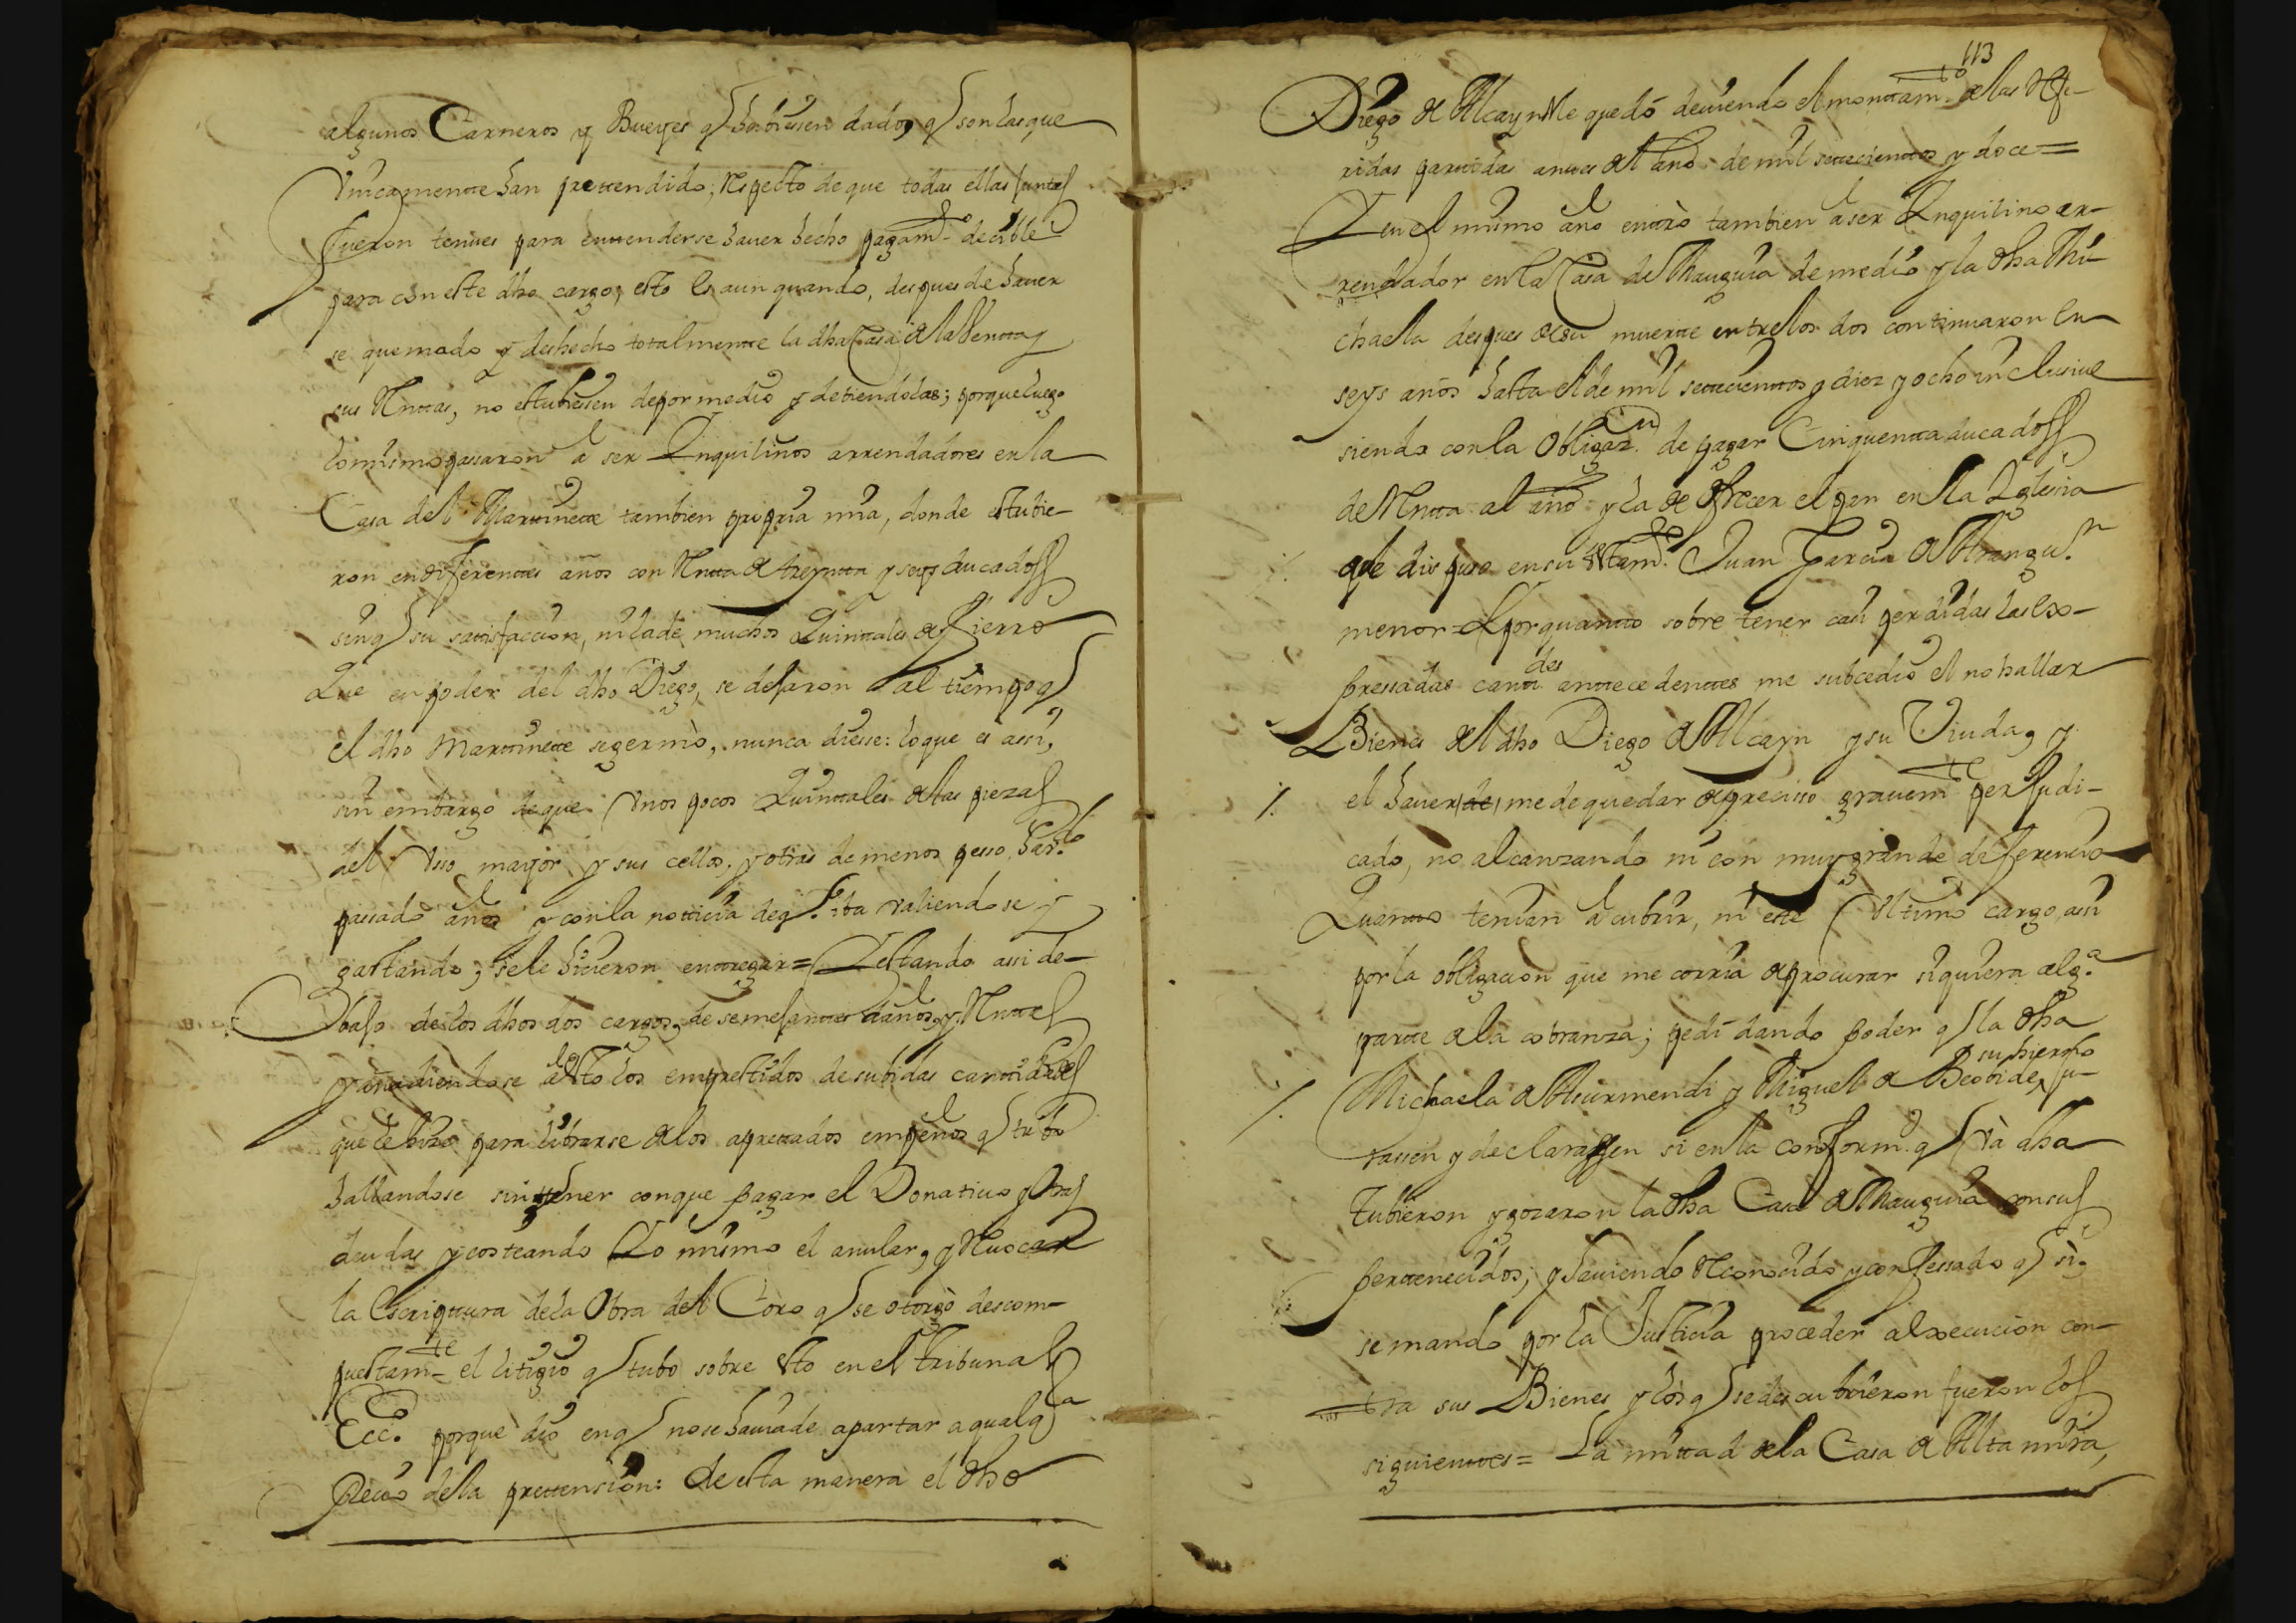 algunos Carneros y Bueyes q hubiessen dado, q son las que
Vnicamente han prettendido; respecto de que todas ellas juntas
fueron tenues para enttenderse hauer hecho pagamto decible
para con este dho cargo; esto es aun quando, despues de hauer
se quemado y deshecho totalmente la dha Casa de la Rentta y
sus Renttas, no estubiessen de por medio y detiendolas; porque luego
lo mismo passaron a ser Inquilinos arrendadores en la
Casa del Marttinette tambien propria mia, donde estubie-
ron en diferenttes años con Rentta de treyntta y seys ducados
sin q su sattisfaccion, ni la de muchos Quinttales de fierro
Que en poder del dho Diego, se dejaron al tiempo q
el dho Marttinette se yermò, nunca diesse: lo que es assi,
sin embargo de que Vnos pocos Quinttales de las piezas
del Vso mayor y sus cellos, y otras de menos pesso, hau.do
passado años y con la notticia de q. iba valiendose y
gastando, se le hicieron enttregar = Y estando assi de-
bajo de los dhos dos cargos, de semejanttes daños, y Renttas
y añadiendose a esto los emprestidos de subidas canttidades
que le hize para librarse de los aprettados empeños q tubo
hallandose sin tener con que pagar el Donatiuo y otras
deudas y costeando Yo mismo el anular, y Reuocar
la Escripttura de la Obra del Coro q se otorgò descom-
puestamte el litigio q tubo sobre esto en el tribunal
Ecc.o porque dio en q no se hauia de apartar a qualq.a
Precio de la prettension: de esta manera el dho
113
Diego de Alcayn Me quedó deuiendo el monttamto de las Refe-
ridas parttidas anttes del año de mil settecienttos y doce =
Y en el mismo año enttrò tambien a ser Inquilino ar-
rendador en la Casa de Mauguia de medio y la dha Mi-
chaela despues de su muertte entre los dos continuaron en
seys años hasta el de mil settecienttos y diez y ocho inclusiue
siendo con la Obligaz.n de pagar Cinquentta ducados
de Rentta al año y la de ofrecer el pan en la Yglesia
que dispuso en su testam.to Juan Garcia de Aranguren
menor = Y por quantto sobre tener casi perdidas las ex-
pressadas cantt.des anttecedenttes me subcedio el no hallar
Bienes del dho Diego de Alcayn y su Viuda, y
el hauer (de) me de quedar de precisso grauemte perjudi-
cado, no alcanzando ni con muy grande deferencia
Quantto tenian a cubrir, ni este Vltimo cargo, assi
por la obligacion que me corria de procurar siquiera alg.a
partte a la cobranza; pedi dando poder q la dha
Michaela de Asurmendi y Miguel de Beobide, su hierno ju-
rassen y declarassen si en la conform.d q Và dha
tubieron y gozaron la dha Casa de Mauguia con sus
perttenecidos; y hauiendo Reconocido y confessado q si,
se mandò por la Justicia proceder a execucion con-
ttra sus Bienes y los q se descubrieron fueron los
siguienttes = La mittad de la Casa de Alta mira,